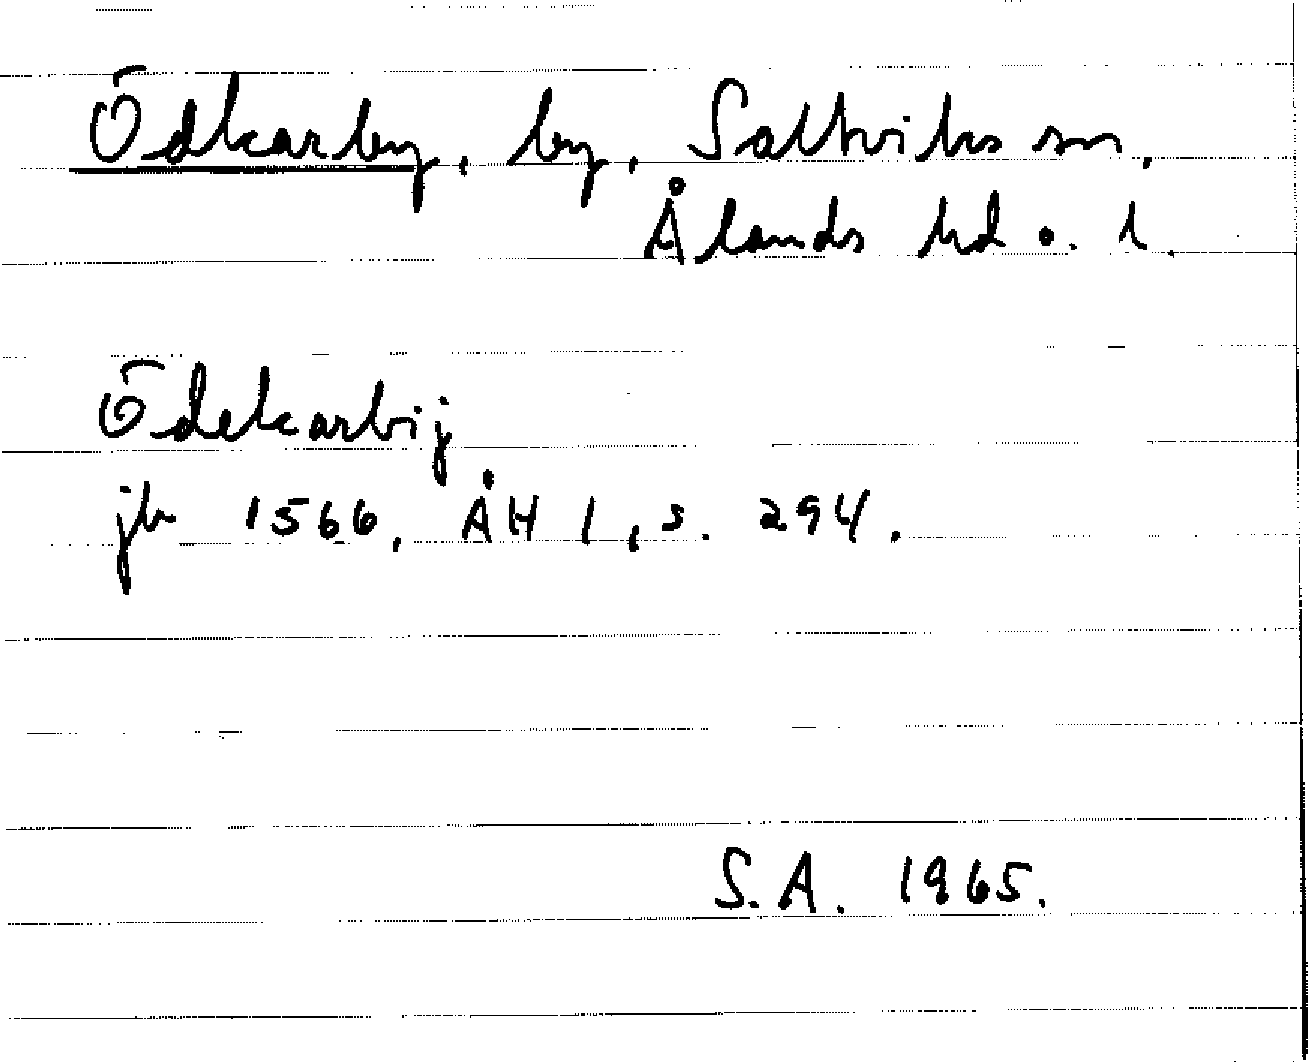 Ödkarby, by, Saltviks sn,
Ålands hd o. l.
Ödekarbij
jb 1566, ÅH I, s. 294.
S.A. 1965.